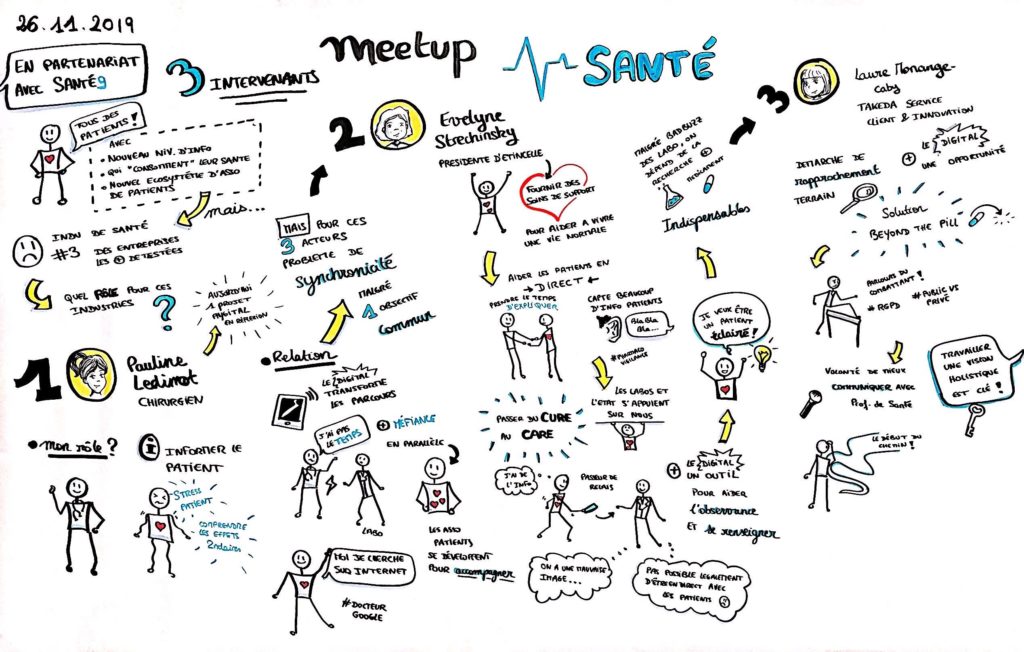 26.11.2019
Meetup SANTÉ
EN PARTENARIAT
AVEC SANTÉg
3 INTERVENANTS
TOUS DES
PATIENTS !
AVEC
• NOUVEAU NIV. D'INFO
• QUI "CONSOMMENT" LEUR SANTE
• NOUVEL ECOSYSTÈME D'ASSO
DE PATIENTS
mais...
INDU DE SANTÉ
#3 DES ENTREPRISES
LES + DETESTÉES
QUEL RÔLE POUR CES
INDUSTRIES ?
AUJOURD'HUI
1 PROJET
DIGITAL
EN RÉFLEXION
MAIS POUR CES
3 ACTEURS
PROBLÈME DE
Synchronicité
MALGRÉ
1 OBJECTIF
Commun
1
Pauline
CHIRURGIEN
• Mon rôle ?
INFORMER LE
PATIENT
STRESS
PATIENT
COMPRENDRE
LES EFFETS
2ndaires
• Relation
LE DIGITAL
TRANSFORME
LES PARCOURS
J'AI PAS
LE TEMPS
+ MÉFIANCE
LABO
EN PARALLÈLE
LES ASSO
PATIENTS
SE DÉVELOPPENT
POUR accompagner
MOI JE CHERCHE
SUR INTERNET
#DOCTEUR
GOOGLE
2
Evelyne
Strechinsky
PRESIDENTE D'ETINCELLE
FOURNIR DES
SOINS DE SUPPORT
POUR AIDER A VIVRE
UNE VIE NORMALE
AIDER LES PATIENTS EN
DIRECT
PRENDRE LE TEMPS
D'EXPLIQUER
CAPTE BEAUCOUP
D'INFO PATIENTS
Bla Bla
Bla...
#PHARMACO
VIGILANCE
LES LABOS ET
L'ETAT S'APPUIENT
SUR NOUS
PASSER DU CURE
AU CARE
J'AI DE
L'INFO
PASSEUR DE
RELAIS
ON A UNE MAUVAISE
IMAGE...
PAS POSSIBLE LEGALEMENT
D'ÊTRE EN DIRECT AVEC
LES PATIENTS
+ LE DIGITAL
UN OUTIL
POUR AIDER
l'observance
ET se renseigner
JE VEUX ÊTRE
UN PATIENT
éclairé !
Indispensables
MALGRÉ BADBUZZ
DES LABO, ON
DÉPEND DE LA
RECHERCHE +
MEDICAMENT
3
Laure Monange-
Caby
TAKEDA SERVICE
CLIENT & INNOVATION
+ LE DIGITAL
UNE OPPORTUNITÉ
DEMARCHE DE
rapprochement
TERRAIN
Solution
BEYOND THE PILL
PARCOURS DU
COMBATTANT !
#RGPD
#PUBLIC VS
PRIVÉ
VOLONTÉ DE MIEUX
COMMUNIQUER AVEC
Prof. de Santé
TRAVAILLER
UNE VISION
HOLISTIQUE
EST CLÉ !
LE DÉBUT DU
CHEMIN !